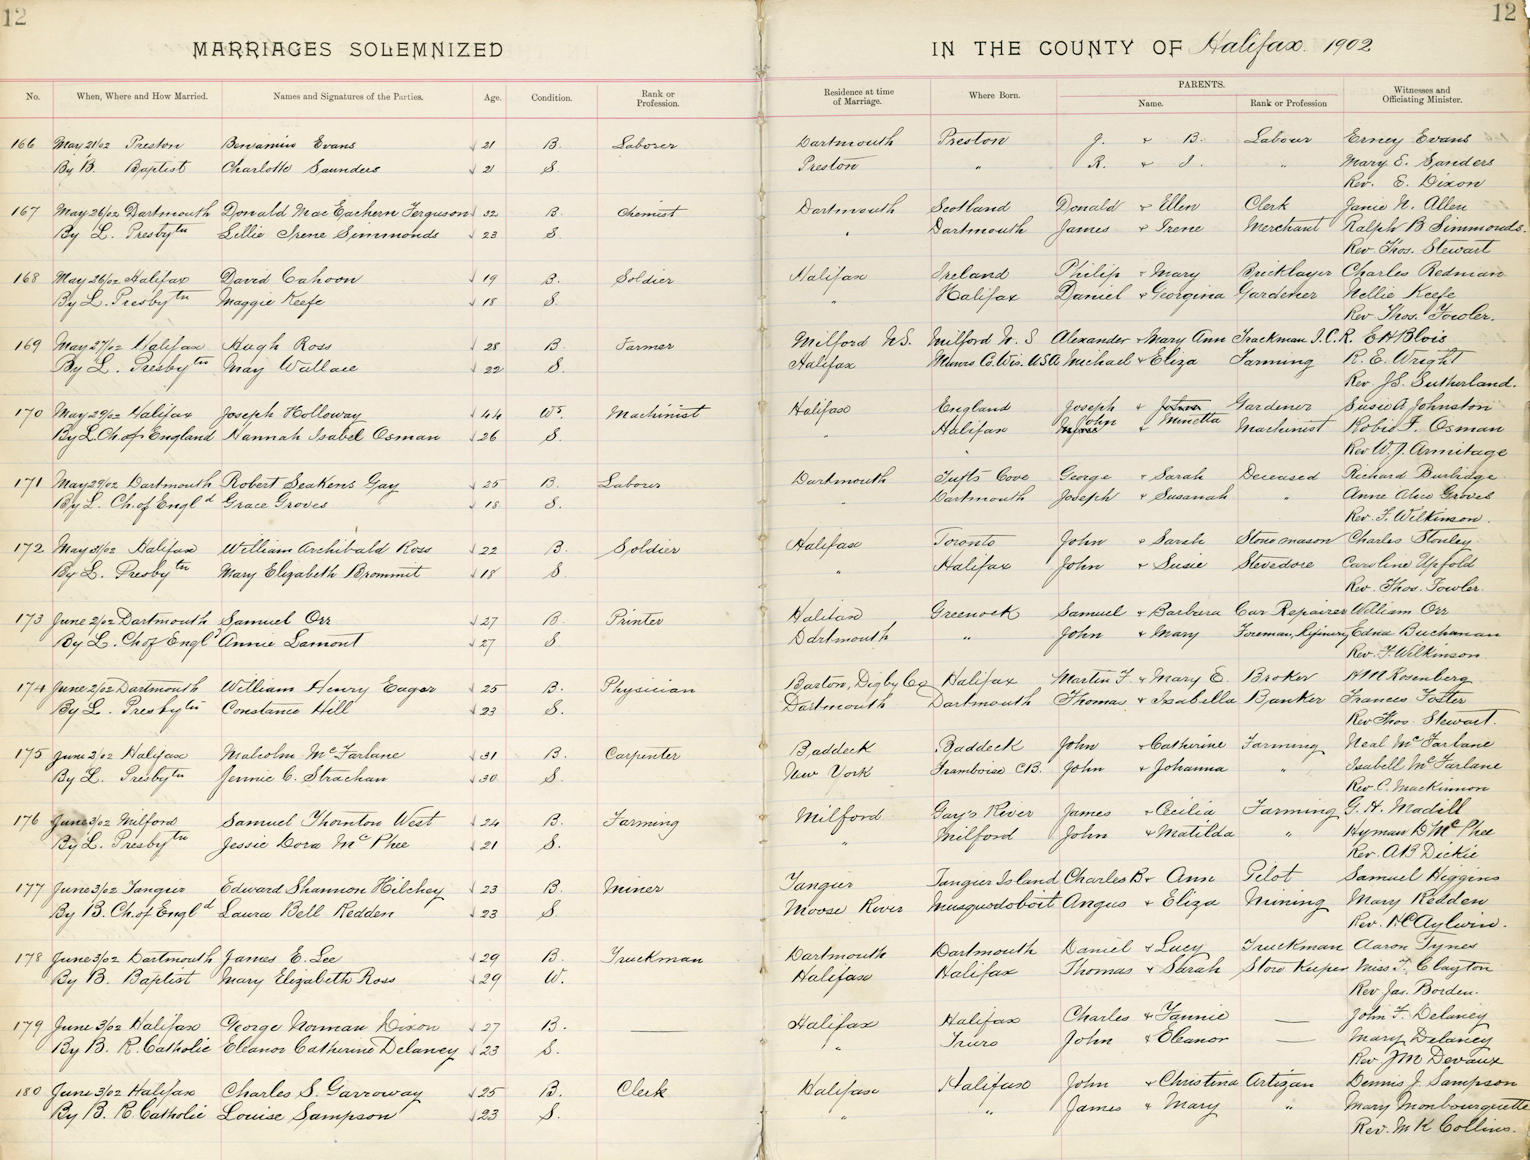 12
12
MARRIAGES SOLEMNIZED
IN THE COUNTY OF Halifax. 1902
No. When, Where and How Married. Names and Signatures of the Parties. Age. Condition. Rank or Profession. Residence at time of Marriage. Where Born. PARENTS. Name. Rank or Profession Witnesses and Officiating Minister.
166 May 21/02 Preston Benjamin Evans 21 B. Laborer Dartmouth Preston J. & B. Labour Erney Evans
By B. Baptist Charlotte Saunders 21 S. Preston " R. & J. " Mary E. Sanders
Rev. E. Dixon
167 May 26/02 Dartmouth Donald MacEachern Ferguson 32 B. Chemist Dartmouth Scotland Donald & Ellen Clerk Janie N. Allen
By L. Presbytn Lillie Irene Simmonds 23 S. " Dartmouth James & Irene Merchant Ralph B Simmonds.
Rev. Thos. Stewart
168 May 26/02 Halifax David Cahoon 19 B. Soldier Halifax Ireland Philip & Mary Bricklayer Charles Redman
By L. Presbytn Maggie Keefe 18 S. " Halifax Daniel & Georgina Gardener Nellie Keefe
Rev. Thos. Fowler.
169 May 27/02 Halifax Hugh Ross 28 B. Farmer Milford N.S. Milford N. S Alexander & Mary Ann Trackman I.C.R. E H Blois
By L. Presbytn May Wallace 22 S. Halifax Co. Wis. U.S.A Michael & Eliza Farming R. E. Wright
Rev. J.S. Sutherland.
170 May 29/02 Halifax Joseph Holloway 44 Wr. Machinist Halifax England Joseph & Gardener Susie A Johnston
By L. Ch of England Hannah Isabel Osman 26 S. " Halifax John & Minetta Machinist Robie F. Osman
Rev W. J. Armitage
171 May 29/02 Dartmouth Robert Seakens Gay 25 B. Labour Dartmouth Tufts Cove George & Sarah Deceased Richard Burbidge
By L. Ch. of Engld Grace Groves 18 S. " Dartmouth Joseph & Susanah " Anne Alice Groves
Rev. F. Wilkinson.
172 May 31/02 Halifax William Archibald Ross 22 B. Soldier Halifax Toronto John & Sarah Stonemason Charles Stonley
By L. Presbytn Mary Elizabeth Brommit 18 S. " Halifax John & Susie Stevedore Caroline Upfold
Rev. Thos. Fowler.
173 June 2/02 Dartmouth Samuel Orr 27 B. Printer Halifax Greenock Samuel & Barbara Car Repairer William Orr
By L. Ch of Engld Annie Lamont 27 S. Dartmouth " John & Mary Foreman, Refinery Edna Buchanan
Rev. F. Wilkinson
174 June 2/02 Dartmouth William Henry Eagar 25 B. Physician Barton, Digby Co Halifax Martin F. & Mary E. Broker H M Rosenberg
By L. Presbytn Constance Hill 23 S. Dartmouth Dartmouth Thomas & Isabella Banker Frances Foster
Rev Thos. Stewart.
175 June 2/02 Halifax Malcolm McFarlane 31 B. Carpenter Baddeck Baddeck John & Catherine Farming Neal McFarlane
By L. Presbytn Jennie C. Strachan 30 S. New York Framboise C.B. John & Johanna " Isabell McFarlane
Rev. C. Mackinnon
176 June 3/02 Milford Samuel Thornton West 24 B. Farming Milford Gay's River James & Cecilia Farming G. H. Madill
By L. Presbytn Jessie Dora McPhee 21 S. " Milford John & Matilda " Hyman D McPhee
Rev. A B Dickie
177 June 3/02 Tangier Edward Shannon Hilchey 23 B. Miner Tangier Tangier Island Charles B & Ann Pilot Samuel Higgins
By B. Ch. of Engld Laura Bell Redden 23 S. Moose River Musquodoboit Angus & Eliza Mining Mary Redden
Rev. H C Aylwin.
178 June 3/02 Dartmouth James E. Lee 29 B. Truckman Dartmouth Dartmouth Daniel & Lucy Truckman Aaron Tynes
By B. Baptist Mary Elizabeth Ross 29 W. Halifax Halifax Thomas & Sarah Store Keeper Miss F. Clayton
Rev. Jas. Borden.
179 June 3/02 Halifax George Norman Dixon 27 B. — Halifax Halifax Charles & Fannie — John F. Delaney
By B. R. Catholic Eleanor Catherine Delaney 23 S. " Truro John & Eleanor — Mary Delaney
Rev J M Devaux
180 June 3/02 Halifax Charles S. Garroway 25 B. Clerk Halifax Halifax John & Christina Artizan Dennis J. Sampson
By B. R Catholic Louise Sampson 23 S. " " James & Mary " Mary Monbourquette
Rev. M K Collins.